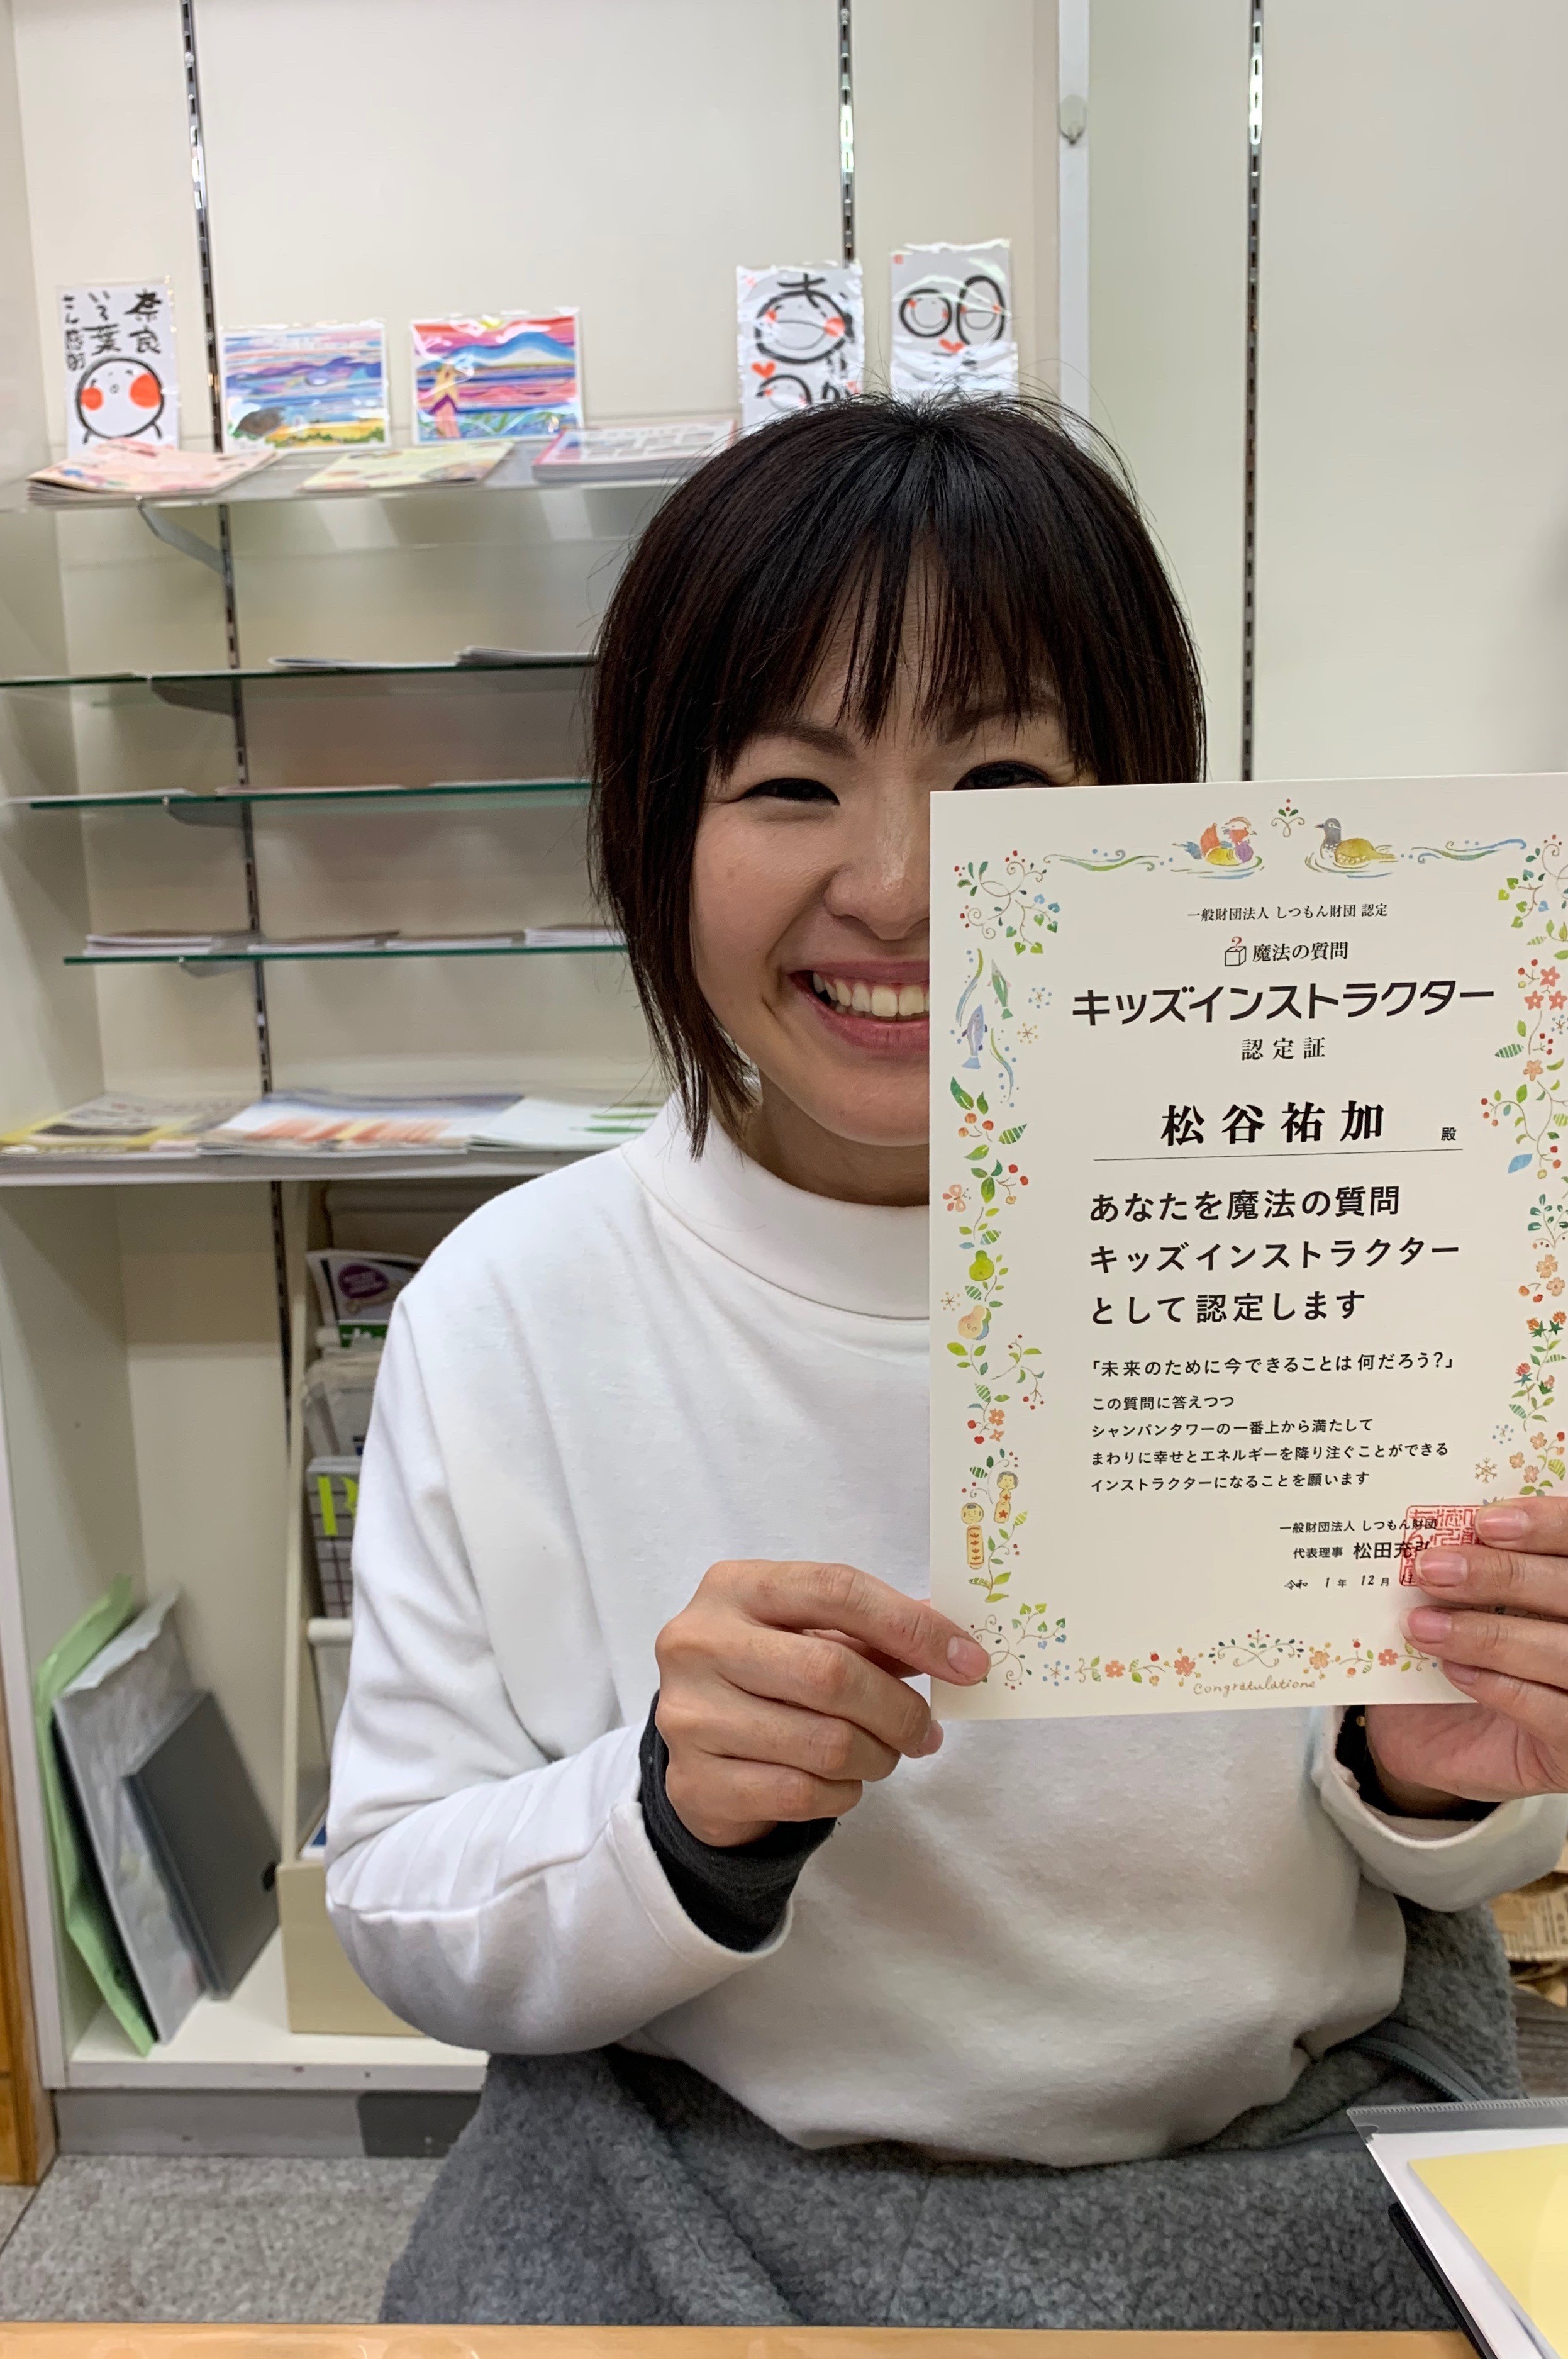 奈良
いろ葉
さん 感謝
一般財団法人 しつもん財団 認定
魔法の質問
キッズインストラクター
認定証
松谷祐加 殿
あなたを魔法の質問
キッズインストラクター
として認定します
「未来のために今できることは何だろう?」
この質問に答えつつ
シャンパンタワーの一番上から満たして
まわりに幸せとエネルギーを降り注ぐことができる
インストラクターになることを願います
一般財団法人 しつもん財団
代表理事 松田充弘
令和 1年 12月
Congratulations